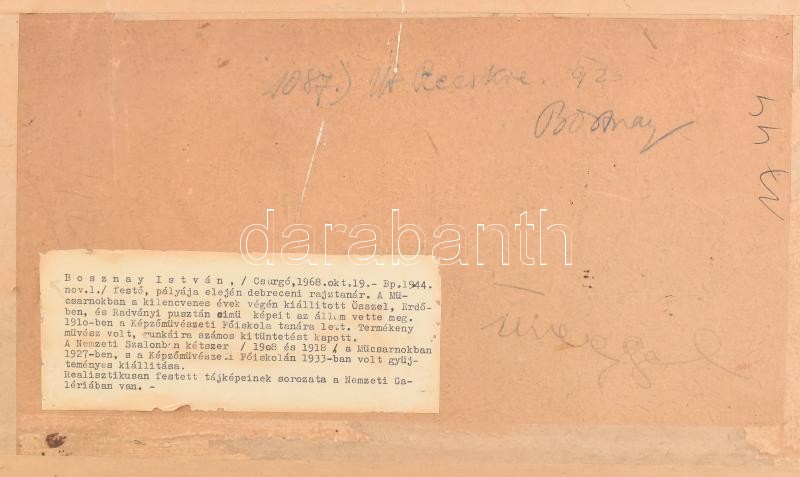 1087.) Út Recskre. 920
Bosznay
darabanth
B o s z n a y  I s t v á n , / Csurgó,1968.okt.19.- Bp.1944.
nov.1./ festő, pályája elején debreceni rajztanár. A Mü-
csarnokban a kilencvenes évek végén kiállított Ősszel, Erdő-
ben, és Radványi pusztán cimü képeit az állam vette meg.
1910-ben a Képzőművészeti Főiskola tanára lett. Termékeny
müvész volt, munkáira számos kitüntetést kapott.
A Nemzeti Szalonban kétszer / 1908 és 1918 / a Mücsarnokban
1927-ben, s a Képzőművészeti Főiskolán 1933-ban volt gyüj-
teményes kiállítása.
Realisztikusan festett tájképeinek sorozata a Nemzeti Ga-
lériában van. -
Üveggel